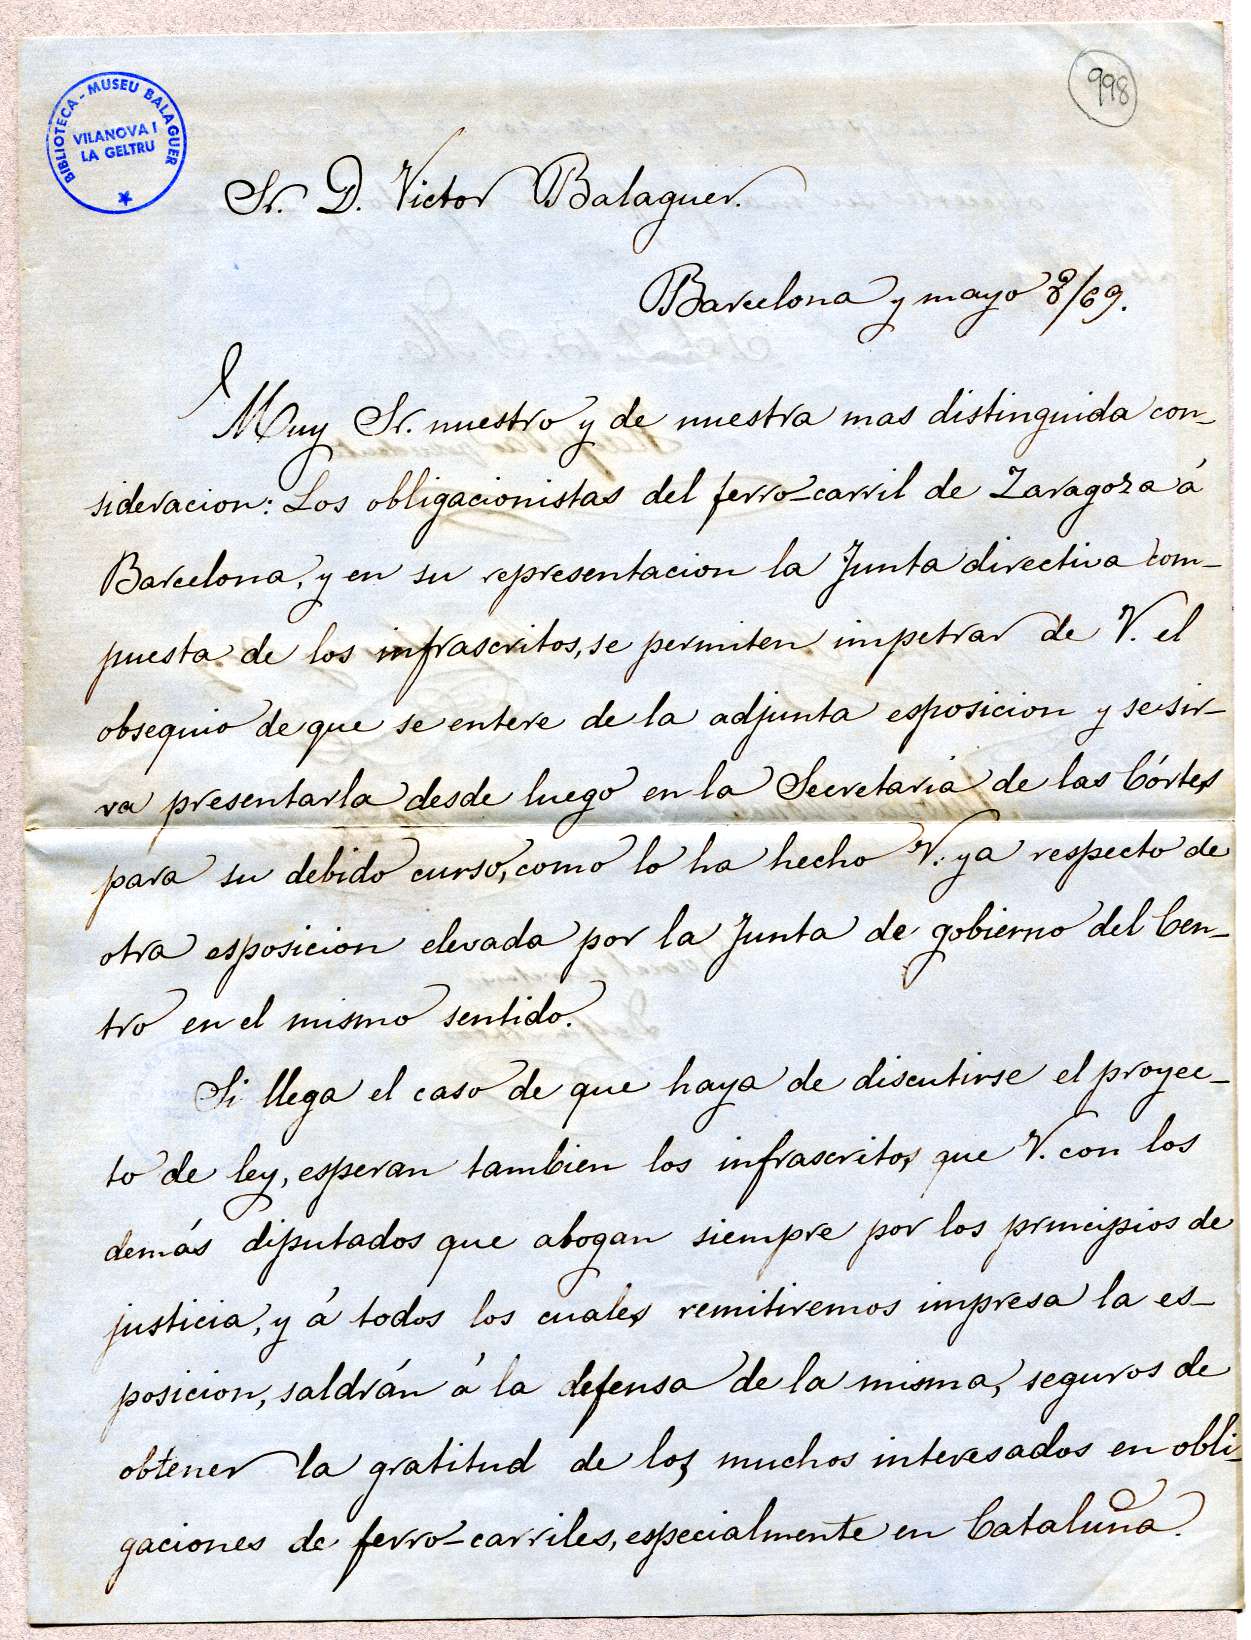 998
BIBLIOTECA - MUSEU BALAGUER
VILANOVA I
LA GELTRU
Sr. D. Victor Balaguer.
Barcelona y mayo 8/69.
Muy Sr. nuestro y de nuestra mas distinguida con-
sideracion: Los obligacionistas del ferro-carril de Zaragoza á
Barcelona, y en su representacion la Junta directiva com-
puesta de los infrascritos, se permiten impetrar de V. el
obsequio de que se entere de la adjunta esposicion y se sir-
va presentarla desde luego en la Secretaría de las Córtes
para su debido curso, como lo ha hecho V. ya respecto de
otra esposicion elevada por la Junta de gobierno del Cen-
tro en el mismo sentido.
Si llega el caso de que haya de discutirse el proyec-
to de ley, esperan tambien los infrascritos que V. con los
demás diputados que abogan siempre por los principios de
justicia, y á todos los cuales remitiremos impresa la es-
posicion, saldrán á la defensa de la misma, seguros de
obtener la gratitud de los muchos interesados en obli-
gaciones de ferro-carriles, especialmente en Cataluña.